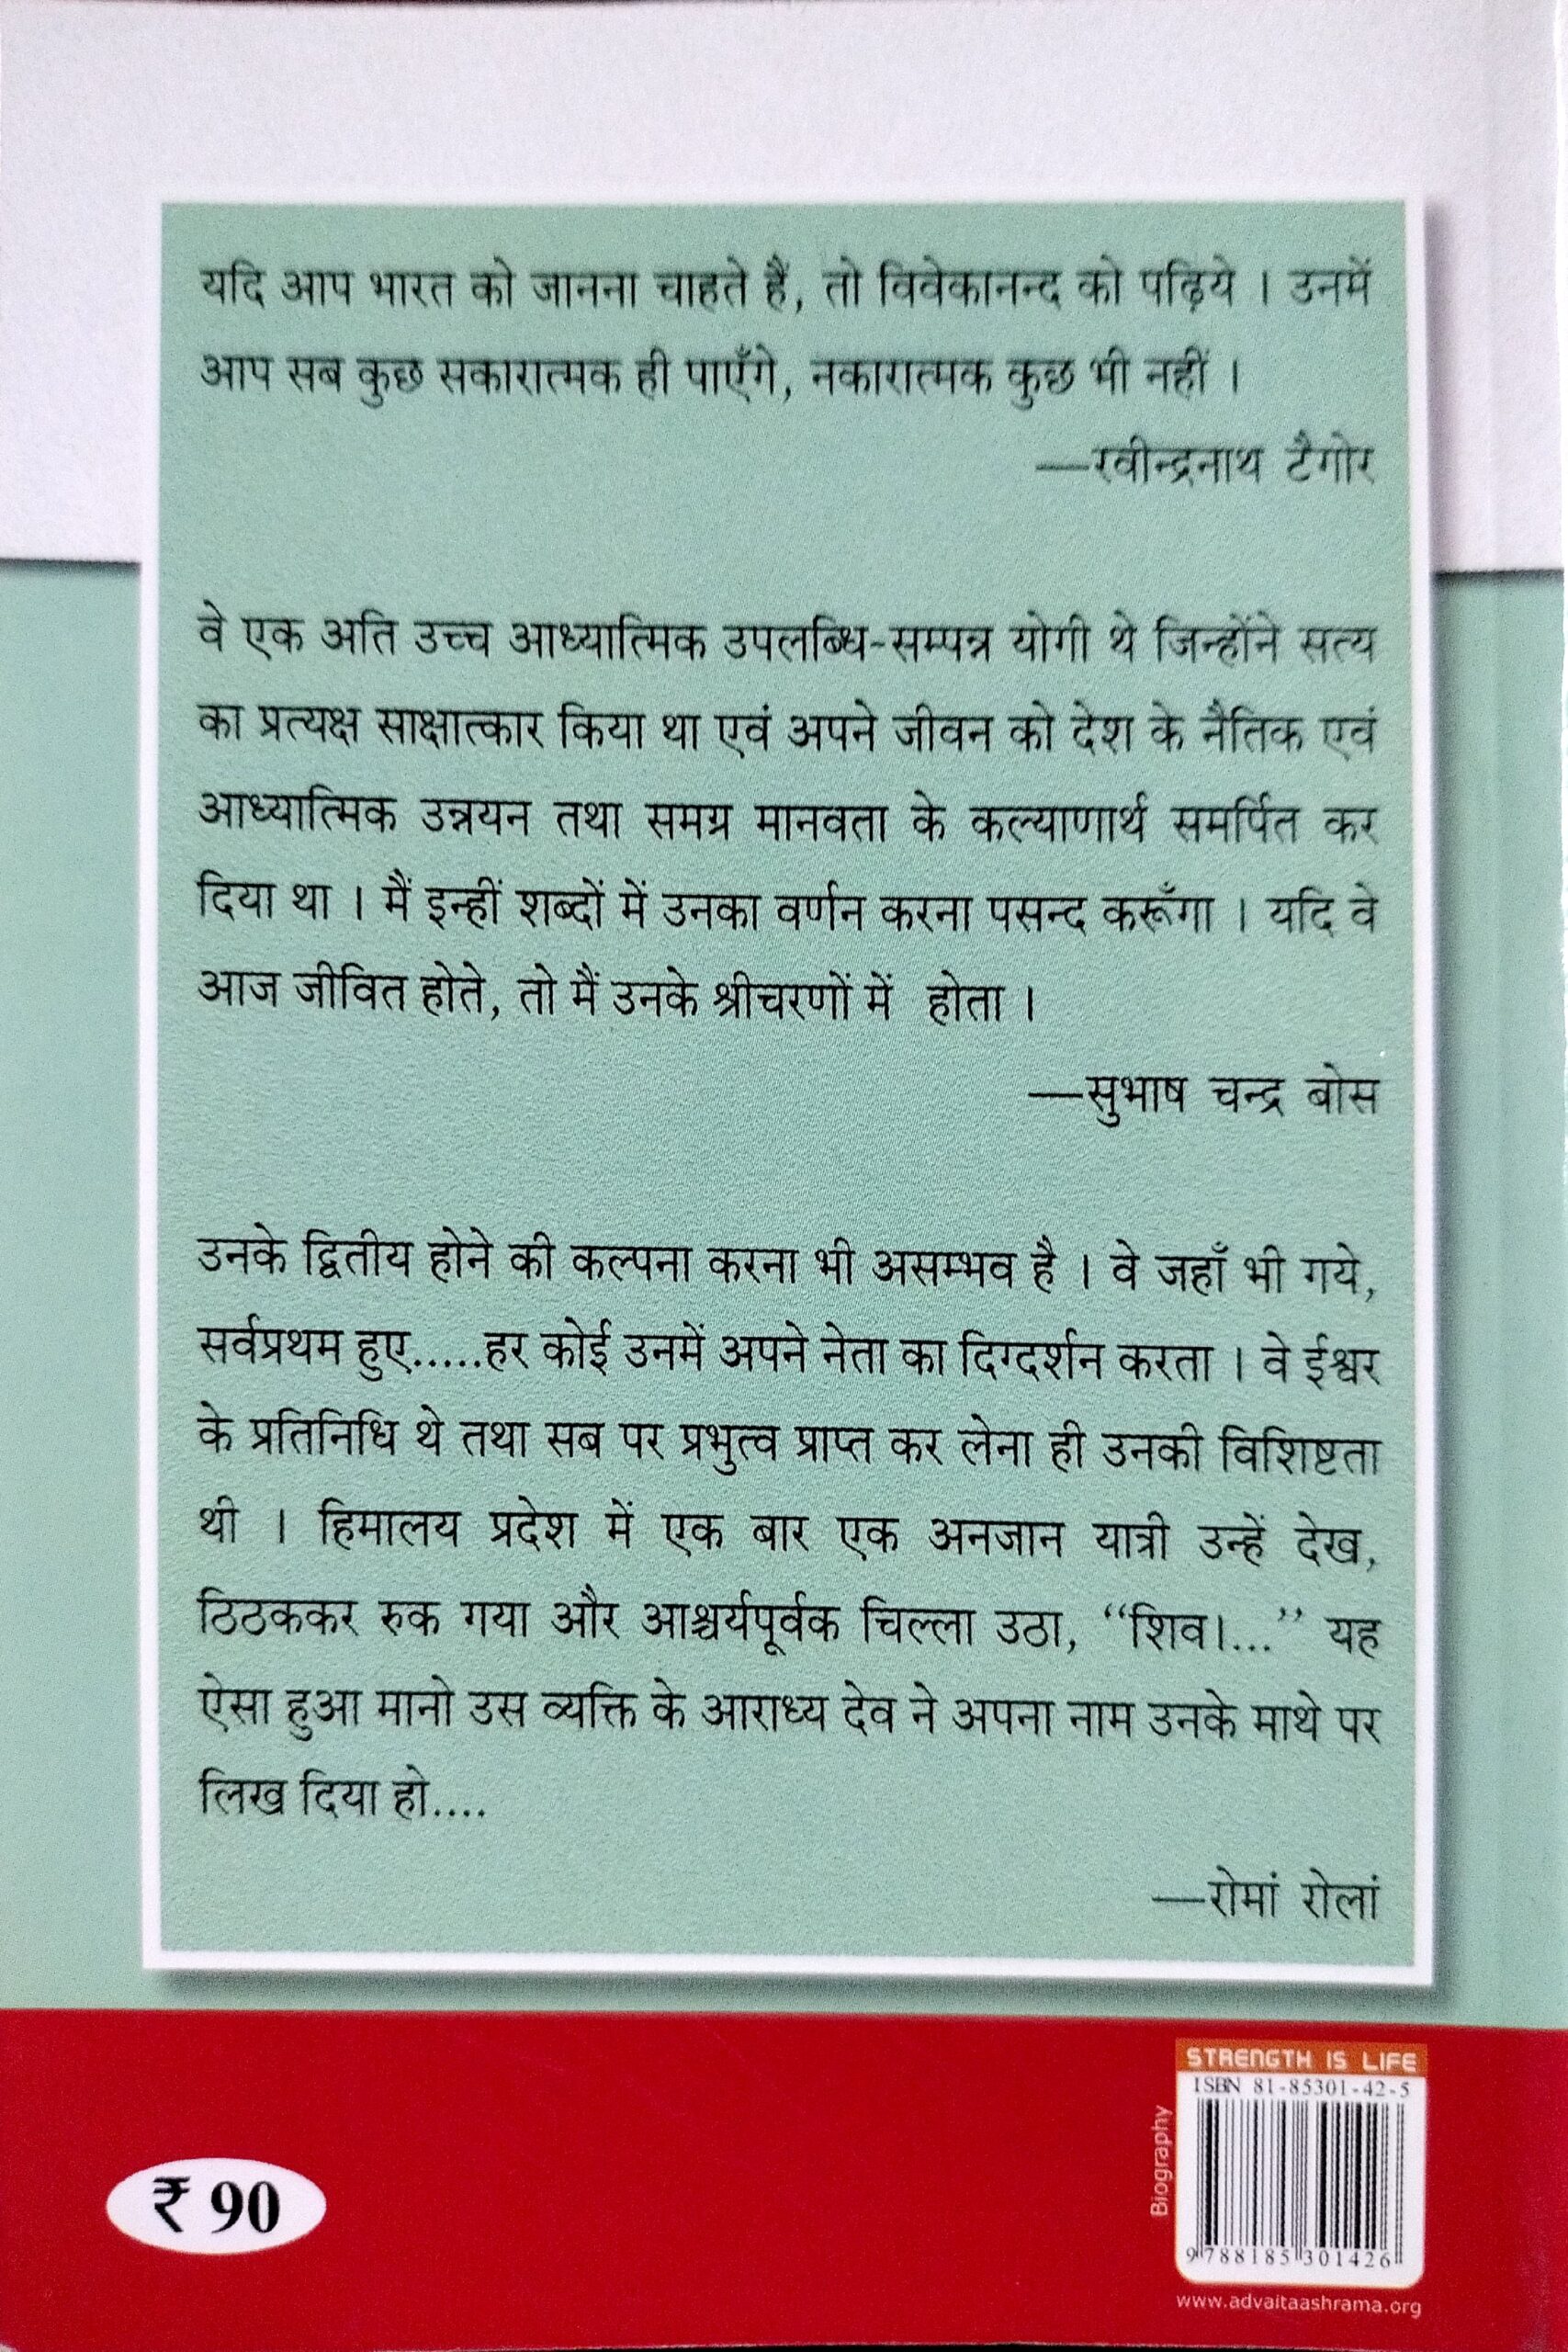 यदि आप भारत को जानना चाहते हैं, तो विवेकानन्द को पढ़िये । उनमें
आप सब कुछ सकारात्मक ही पाएँगे, नकारात्मक कुछ भी नहीं ।
—रवीन्द्रनाथ टैगोर
वे एक अति उच्च आध्यात्मिक उपलब्धि-सम्पन्न योगी थे जिन्होंने सत्य
का प्रत्यक्ष साक्षात्कार किया था एवं अपने जीवन को देश के नैतिक एवं
आध्यात्मिक उन्नयन तथा समग्र मानवता के कल्याणार्थ समर्पित कर
दिया था । मैं इन्हीं शब्दों में उनका वर्णन करना पसन्द करूँगा । यदि वे
आज जीवित होते, तो मैं उनके श्रीचरणों में होता ।
—सुभाष चन्द्र बोस
उनके द्वितीय होने की कल्पना करना भी असम्भव है । वे जहाँ भी गये,
सर्वप्रथम हुए.....हर कोई उनमें अपने नेता का दिग्दर्शन करता । वे ईश्वर
के प्रतिनिधि थे तथा सब पर प्रभुत्व प्राप्त कर लेना ही उनकी विशिष्टता
थी । हिमालय प्रदेश में एक बार एक अनजान यात्री उन्हें देख,
ठिठककर रुक गया और आश्चर्यपूर्वक चिल्ला उठा, “शिव।...” यह
ऐसा हुआ मानो उस व्यक्ति के आराध्य देव ने अपना नाम उनके माथे पर
लिख दिया हो....
—रोमां रोलां
STRENGTH IS LIFE
ISBN 81-85301-42-5
Biography
₹ 90
9 788185 301426
www.advaitaashrama.org